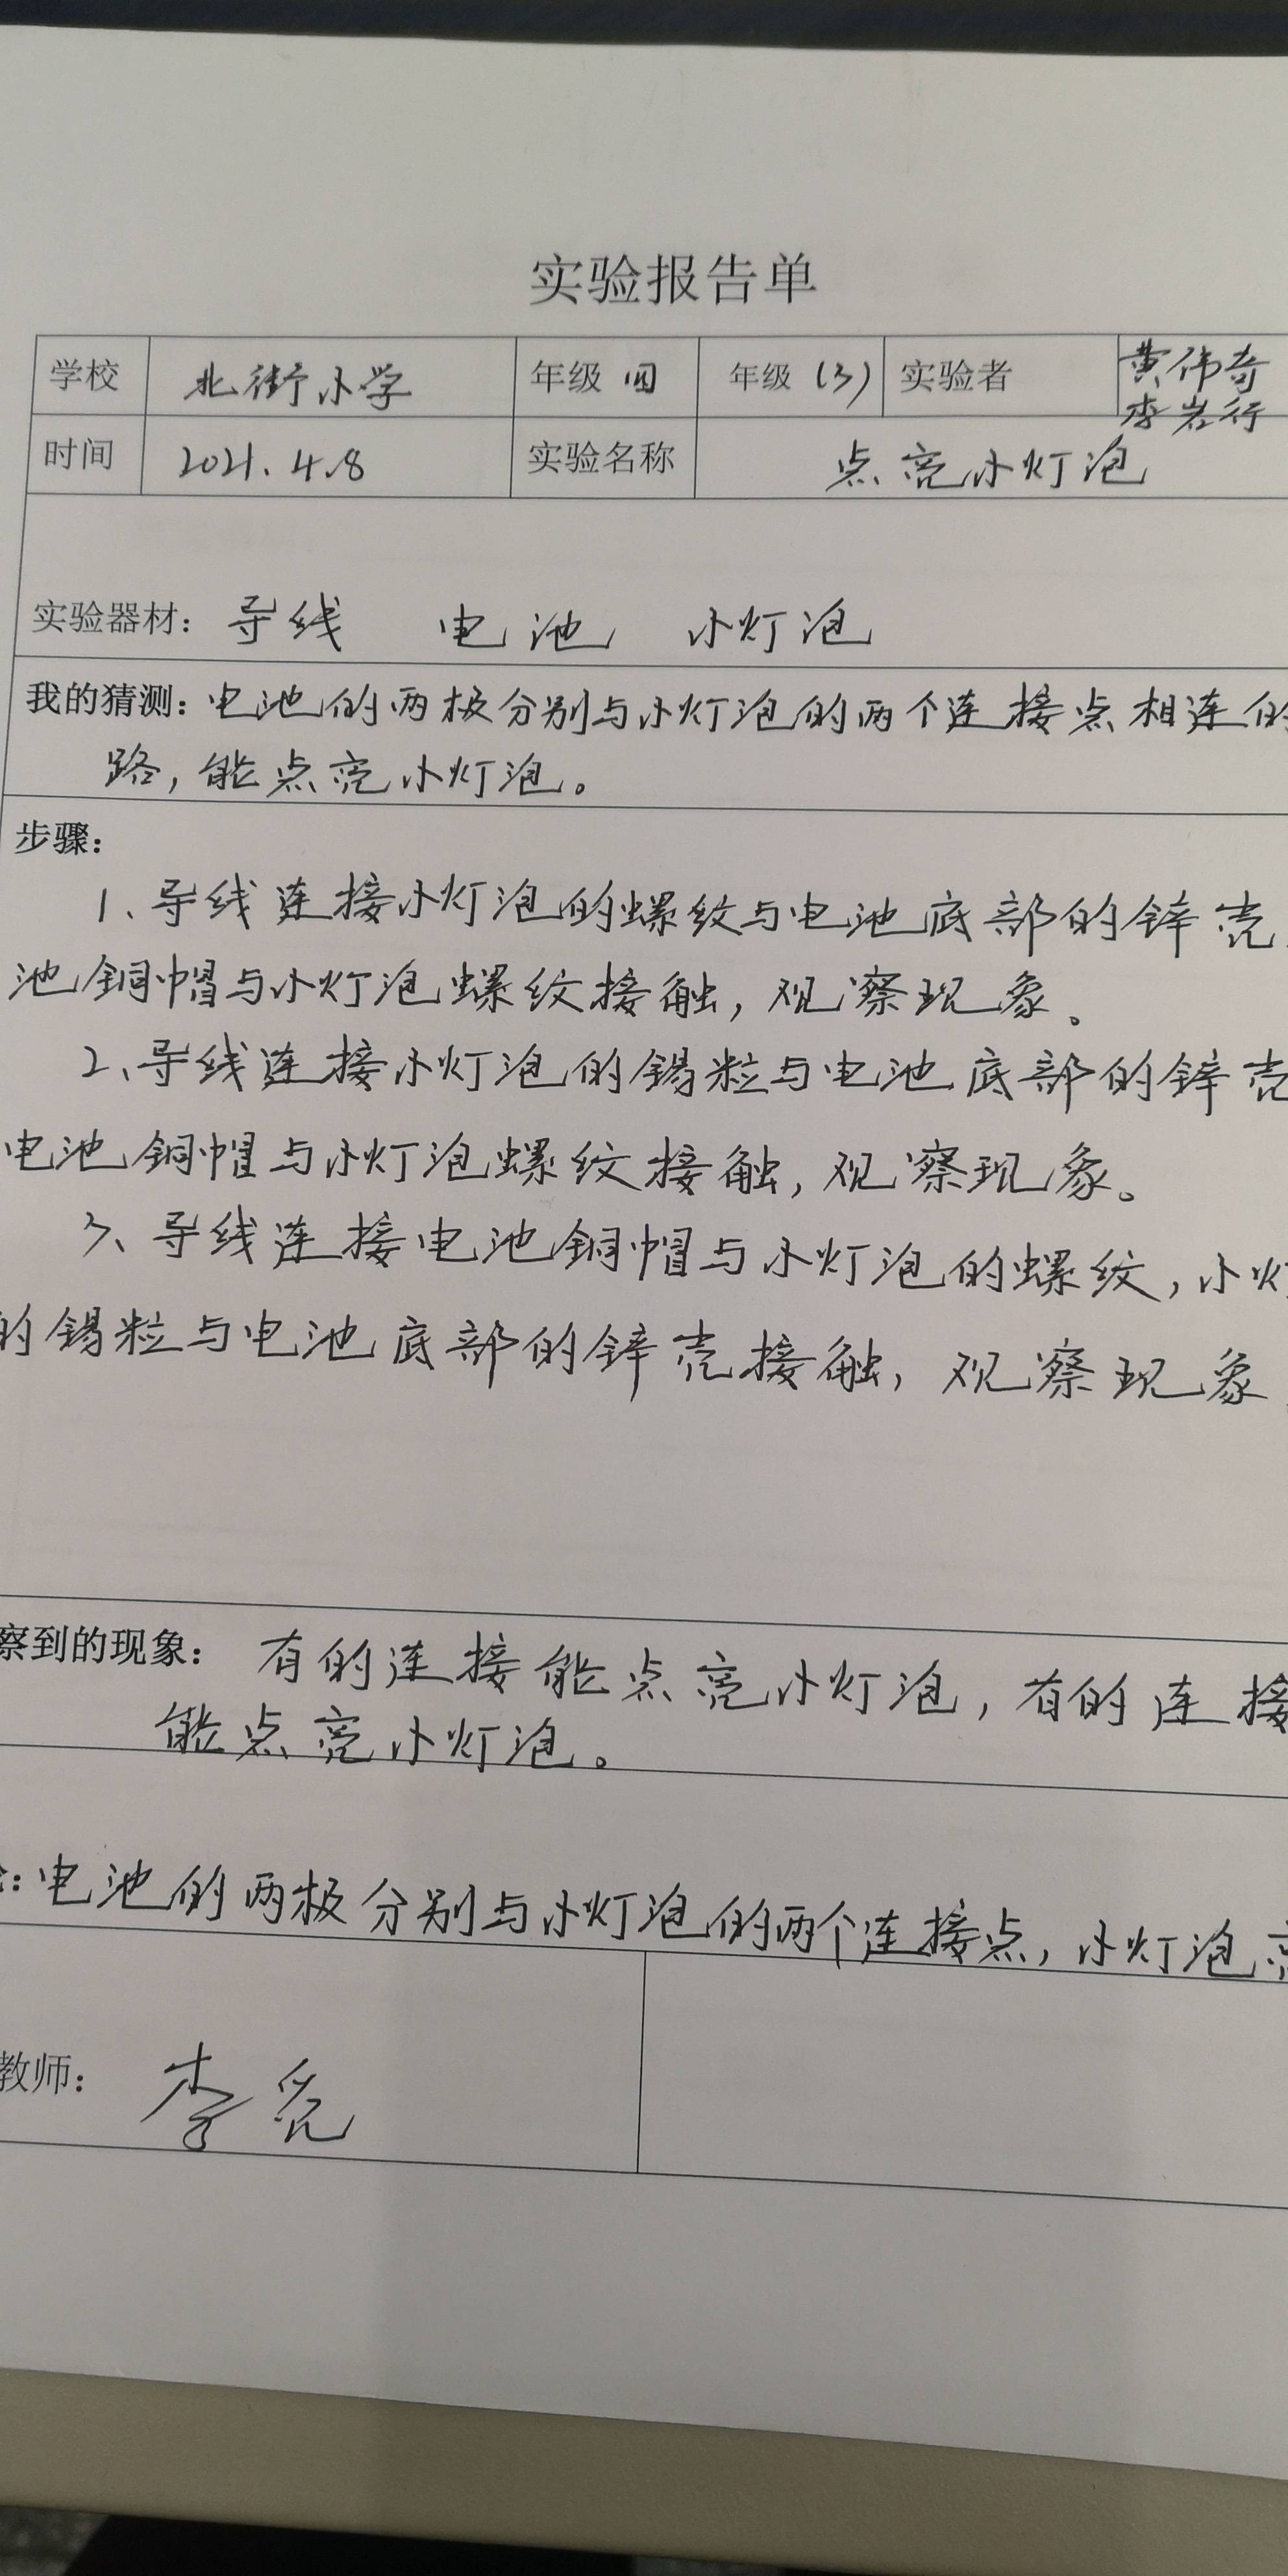 实验报告单
学校 北街小学 年级 四 年级 (3) 实验者 黄伟奇
李岩行
时间 2021.4.8 实验名称 点亮小灯泡
实验器材: 导线 电池 小灯泡
我的猜测: 电池的两极分别与小灯泡的两个连接点相连的
路,能点亮小灯泡。
步骤:
1、导线连接小灯泡的螺纹与电池底部的锌壳
池铜帽与小灯泡螺纹接触,观察现象。
2、导线连接小灯泡的锡粒与电池底部的锌壳
电池铜帽与小灯泡螺纹接触,观察现象。
3、导线连接电池铜帽与小灯泡的螺纹,小灯
的锡粒与电池底部的锌壳接触,观察现象
察到的现象: 有的连接能点亮小灯泡,有的连接
能点亮小灯泡。
:电池的两极分别与小灯泡的两个连接点,小灯泡亮
教师: 李